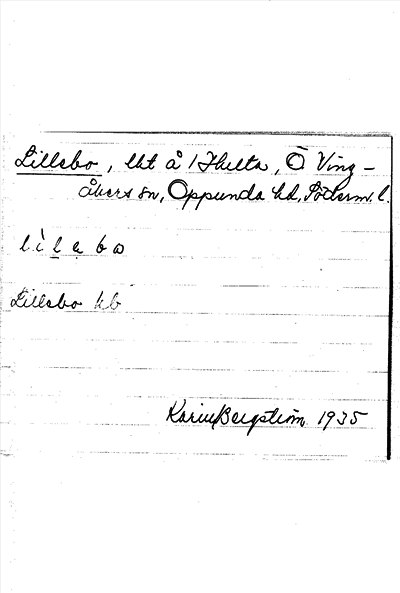 Lillebo, lht å 1 Hulta, Ö Ving-
åkers sn, Oppunda hd, Söderm. l.
l ì l e b ω
Lillebo kb
Karin Bergström 1935